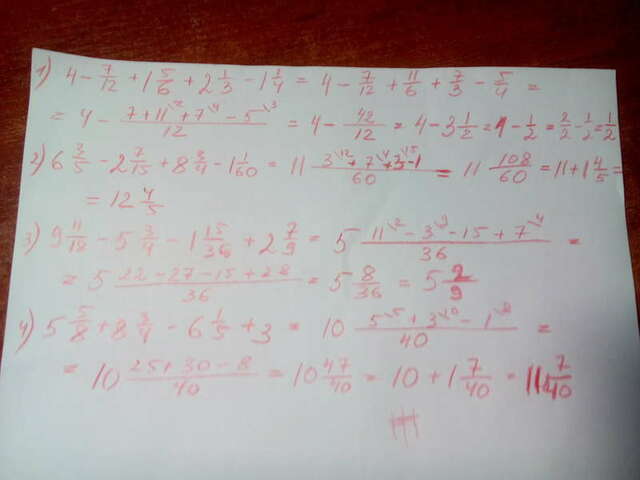 1) 4 - 7/12 + 1 5/6 + 2 1/3 - 1 1/4 = 4 - 7/12 + 11/6 + 7/3 - 5/4 =
= 4 - (7 + 11\2 + 7\4 - 5\3)/12 = 4 - 42/12 = 4 - 3 1/2 = 1 - 1/2 = 2/2 - 1/2 = 1/2
2) 6 3/5 - 2 7/15 + 8 3/4 - 1 1/60 = 11 (3\12 + 7\4 + 3\15 - 1)/60 = 11 108/60 = 11 + 1 4/5 =
= 12 4/5
3) 9 11/18 - 5 3/4 - 1 15/36 + 2 7/9 = 5 (11\2 - 3\9 - 15 + 7\4)/36 =
= 5 (22 - 27 - 15 + 28)/36 = 5 8/36 = 5 2/9
4) 5 5/8 + 8 3/4 - 6 1/5 + 3 = 10 (5\5 + 3\10 - 1\8)/40 =
= 10 (25 + 30 - 8)/40 = 10 47/40 = 10 + 1 7/40 = 11 7/40